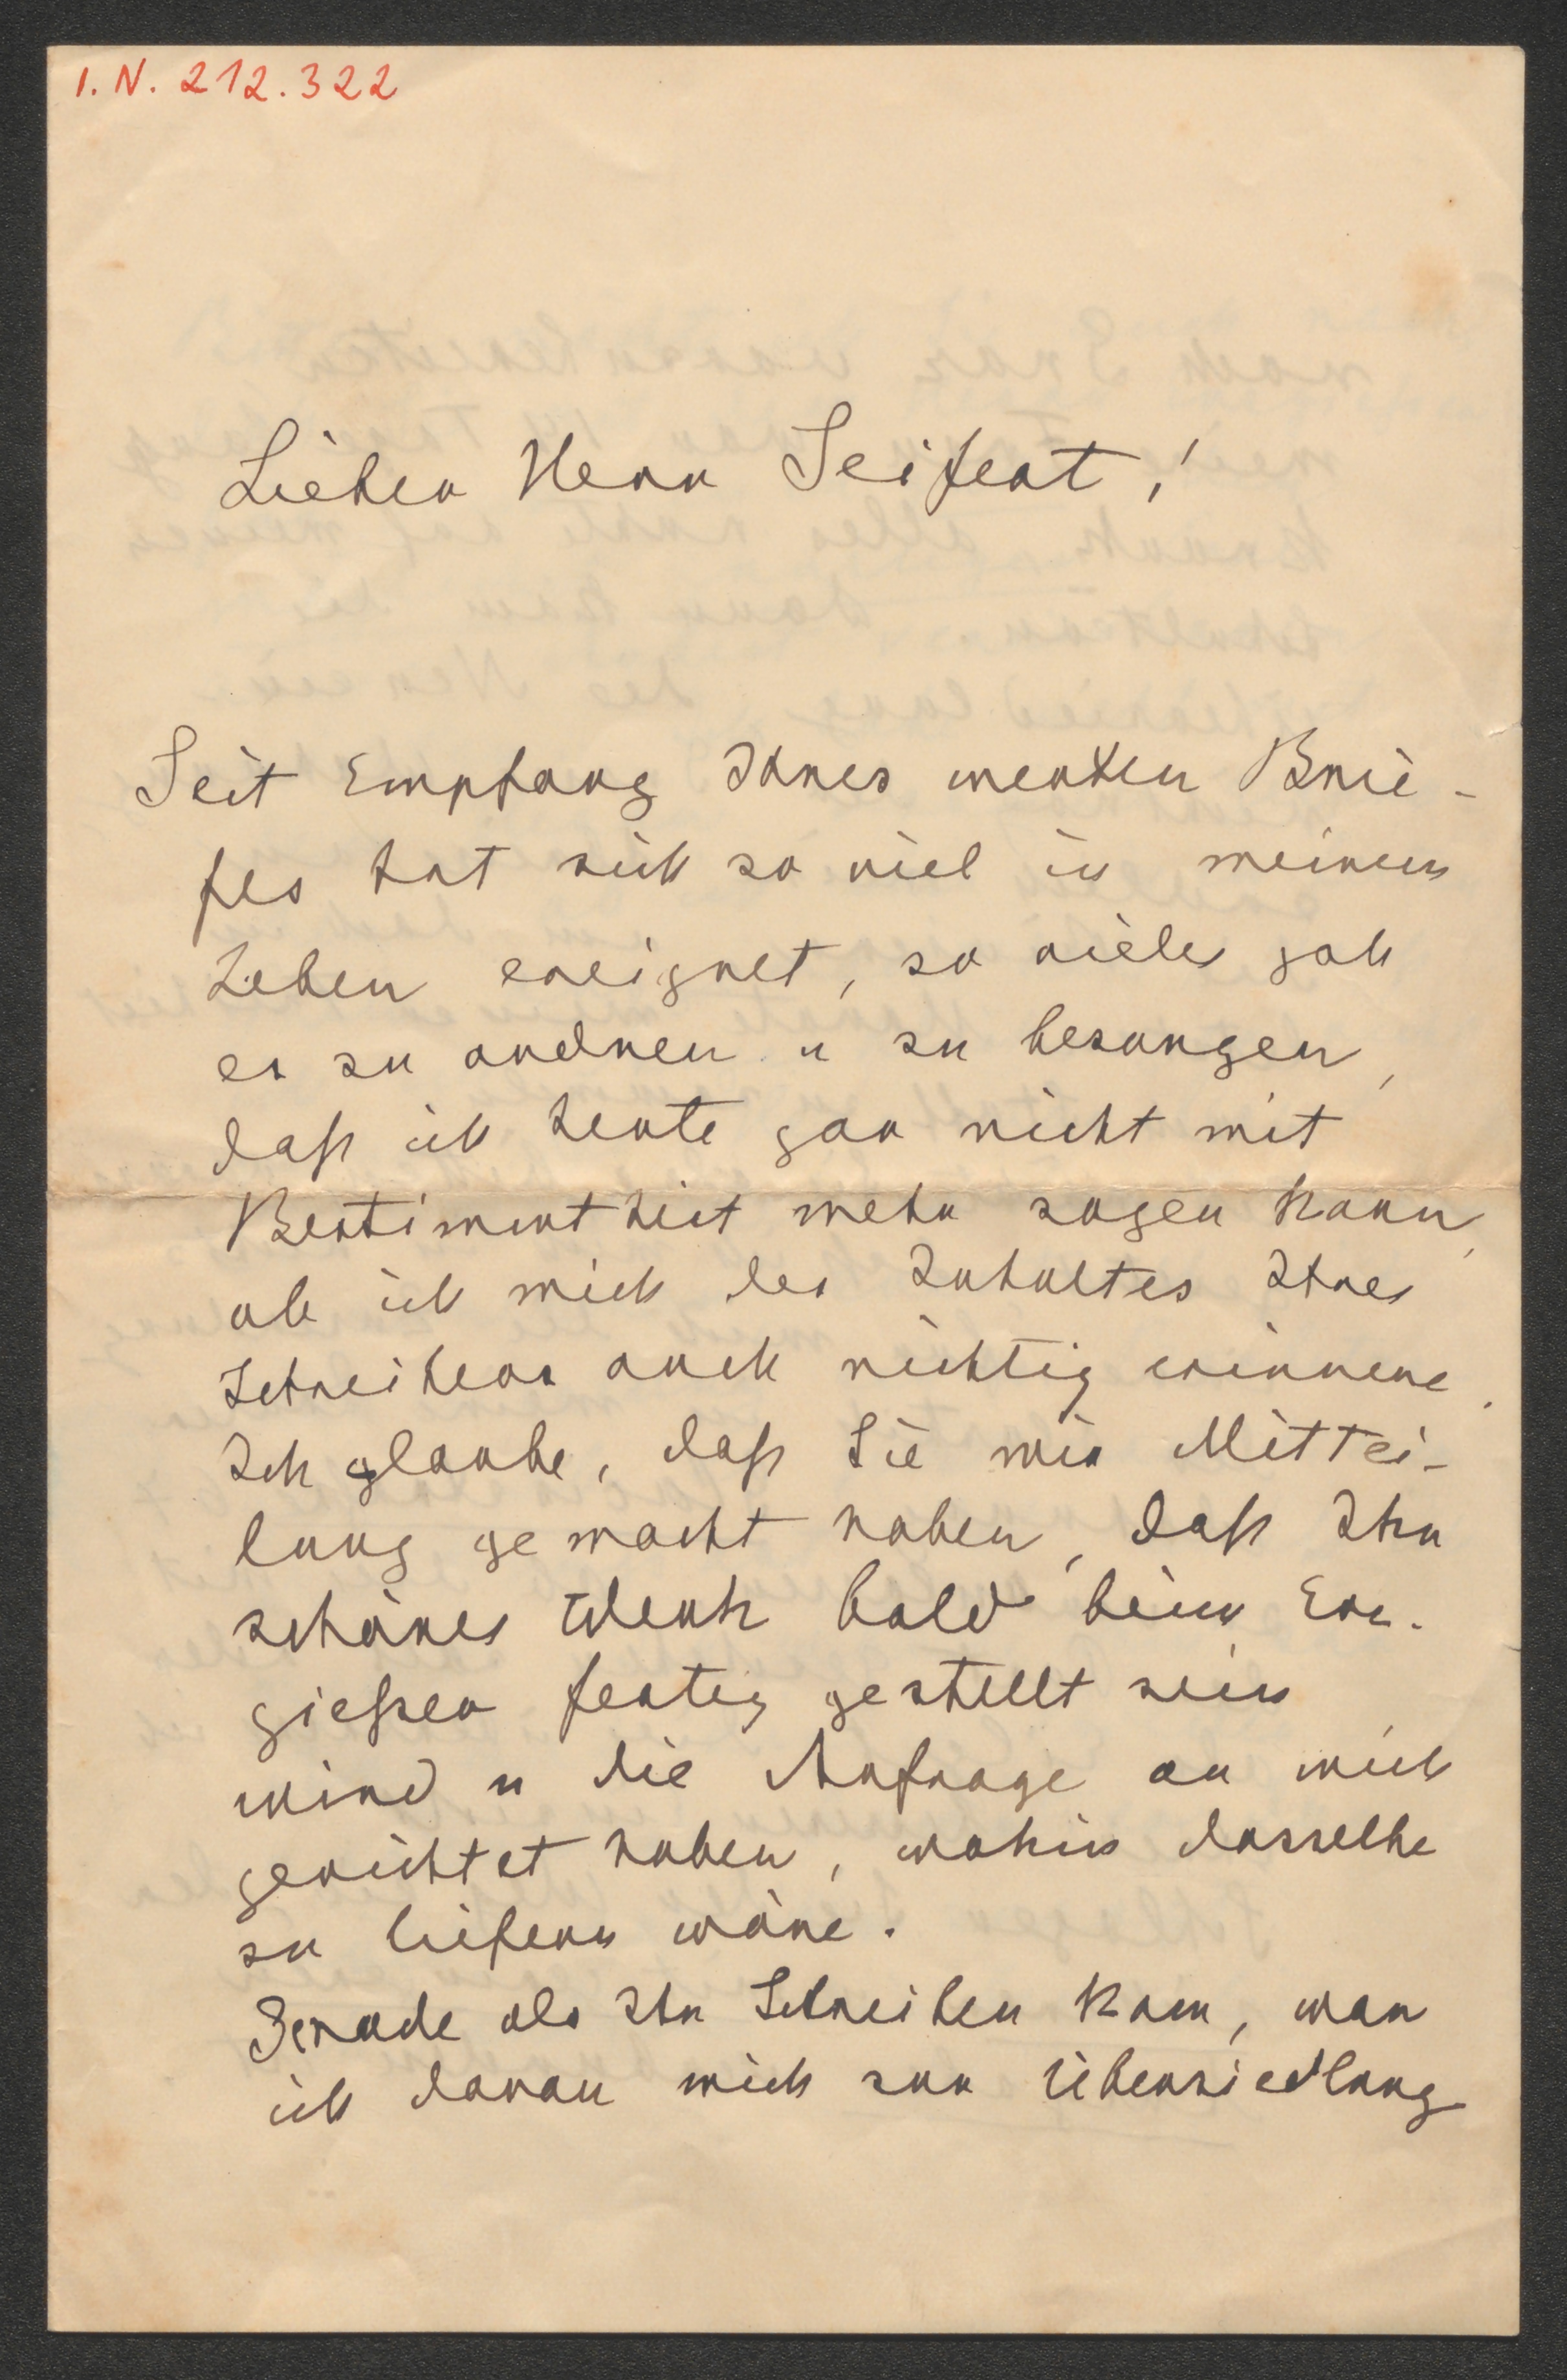 I. N. 212.322
Lieber Herr Seifert!
Seit Empfang Ihres werten Brie-
fes hat sich so viel in meinem
Leben ereignet, so vieles gab
es zu ordnen u zu besorgen,
daß ich heute gar nicht mit
Bestimmtheit mehr sagen kann,
ob ich mich des Inhaltes Ihres
Schreibens auch richtig erinnere.
Ich glaube, daß Sie mir Mittei-
lung gemacht haben, daß Ihr
schönes Werk bald beim Erz-
gießer fertig gestellt sein
wird u die Anfrage an mich
gerichtet haben, wohin dasselbe
zu liefern wäre.
Gerade als Ihr Schreiben kam, war
ich daran mich zur Übersiedlung